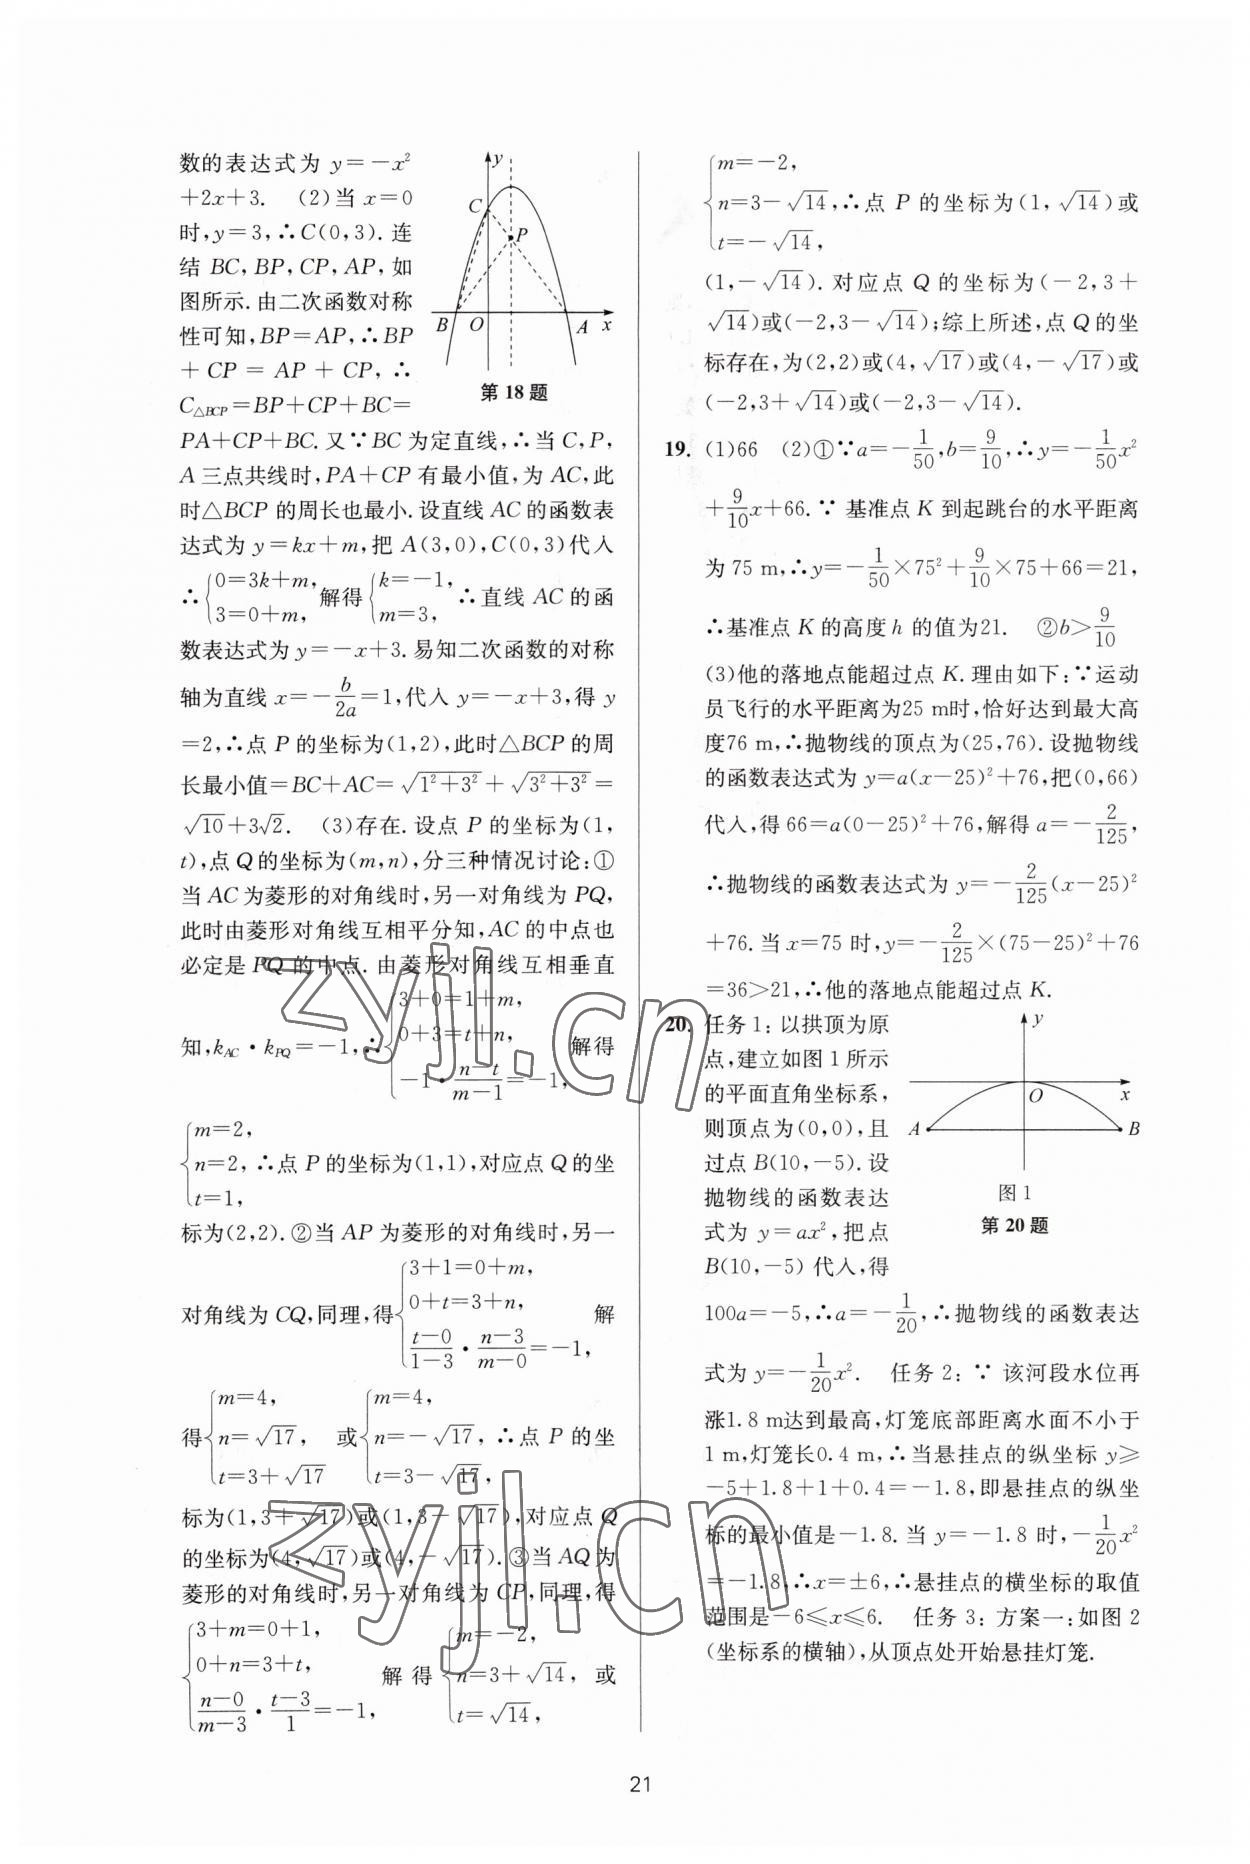 数的表达式为 y=-x²
+2x+3. (2)当 x=0
时,y=3,∴C(0,3). 连
结 BC,BP,CP,AP,如
图所示. 由二次函数对称
性可知,BP=AP,∴BP
+CP=AP+CP,∴
C△BCP=BP+CP+BC=
y
C
P
B
O
A
x
第18题
PA+CP+BC. 又∵BC 为定直线,∴当 C,P,
A 三点共线时,PA+CP 有最小值,为 AC,此
时△BCP 的周长也最小. 设直线 AC 的函数表
达式为 y=kx+m,把 A(3,0),C(0,3)代入
∴{0=3k+m, 3=0+m, 解得{k=-1, m=3, ∴直线 AC 的函
数表达式为 y=-x+3. 易知二次函数的对称
轴为直线 x=-b/2a=1,代入 y=-x+3,得 y
=2,∴点 P 的坐标为(1,2),此时△BCP 的周
长最小值=BC+AC=√(1²+3²)+√(3²+3²)=
√10+3√2. (3)存在. 设点 P 的坐标为(1,
t),点 Q 的坐标为(m,n),分三种情况讨论:①
当 AC 为菱形的对角线时,另一对角线为 PQ,
此时由菱形对角线互相平分知,AC 的中点也
必定是 PQ 的中点. 由菱形对角线互相垂直
知,kAC·kPQ=-1,∴{3+0=1+m, 0+3=t+n, -1·(n-t)/(m-1)=-1, 解得
{m=2, n=2, t=1, ∴点 P 的坐标为(1,1),对应点 Q 的坐
标为(2,2). ②当 AP 为菱形的对角线时,另一
对角线为 CQ,同理,得{3+1=0+m, 0+t=3+n, (t-0)/(1-3)·(n-3)/(m-0)=-1, 解
得{m=4, n=√17, t=3+√17 或{m=4, n=-√17, t=3-√17, ∴点 P 的坐
标为(1,3+√17)或(1,3-√17),对应点 Q
的坐标为(4,√17)或(4,-√17). ③当 AQ 为
菱形的对角线时,另一对角线为 CP,同理,得
{3+m=0+1, 0+n=3+t, (n-0)/(m-3)·(t-3)/1=-1, 解得{m=-2, n=3+√14, t=√14, 或
{m=-2, n=3-√14, t=-√14, ∴点 P 的坐标为(1,√14)或
(1,-√14). 对应点 Q 的坐标为(-2,3+
√14)或(-2,3-√14);综上所述,点 Q 的坐
标存在,为(2,2)或(4,√17)或(4,-√17)或
(-2,3+√14)或(-2,3-√14).
19. (1)66 (2)①∵a=-1/50,b=9/10,∴y=-1/50x²
+9/10x+66. ∵ 基准点 K 到起跳台的水平距离
为 75 m,∴y=-1/50×75²+9/10×75+66=21,
∴基准点 K 的高度 h 的值为21. ②b>9/10
(3)他的落地点能超过点 K. 理由如下:∵运动
员飞行的水平距离为25 m时,恰好达到最大高
度76 m,∴抛物线的顶点为(25,76). 设抛物线
的函数表达式为 y=a(x-25)²+76,把(0,66)
代入,得 66=a(0-25)²+76,解得 a=-2/125,
∴抛物线的函数表达式为 y=-2/125(x-25)²
+76. 当 x=75 时,y=-2/125×(75-25)²+76
=36>21,∴他的落地点能超过点 K.
20. 任务1:以拱顶为原
点,建立如图1所示
的平面直角坐标系,
则顶点为(0,0),且
过点 B(10,-5). 设
抛物线的函数表达
式为 y=ax²,把点
B(10,-5) 代入,得
y
O
x
A
B
图1
第20题
100a=-5,∴a=-1/20,∴抛物线的函数表达
式为 y=-1/20x². 任务2:∵ 该河段水位再
涨1.8 m达到最高,灯笼底部距离水面不小于
1 m,灯笼长0.4 m,∴当悬挂点的纵坐标 y≥
-5+1.8+1+0.4=-1.8,即悬挂点的纵坐
标的最小值是-1.8. 当 y=-1.8 时,-1/20x²
=-1.8,∴x=±6,∴悬挂点的横坐标的取值
范围是-6≤x≤6. 任务3:方案一:如图2
(坐标系的横轴),从顶点处开始悬挂灯笼.
zyjl.cn
zyjl.cn
21